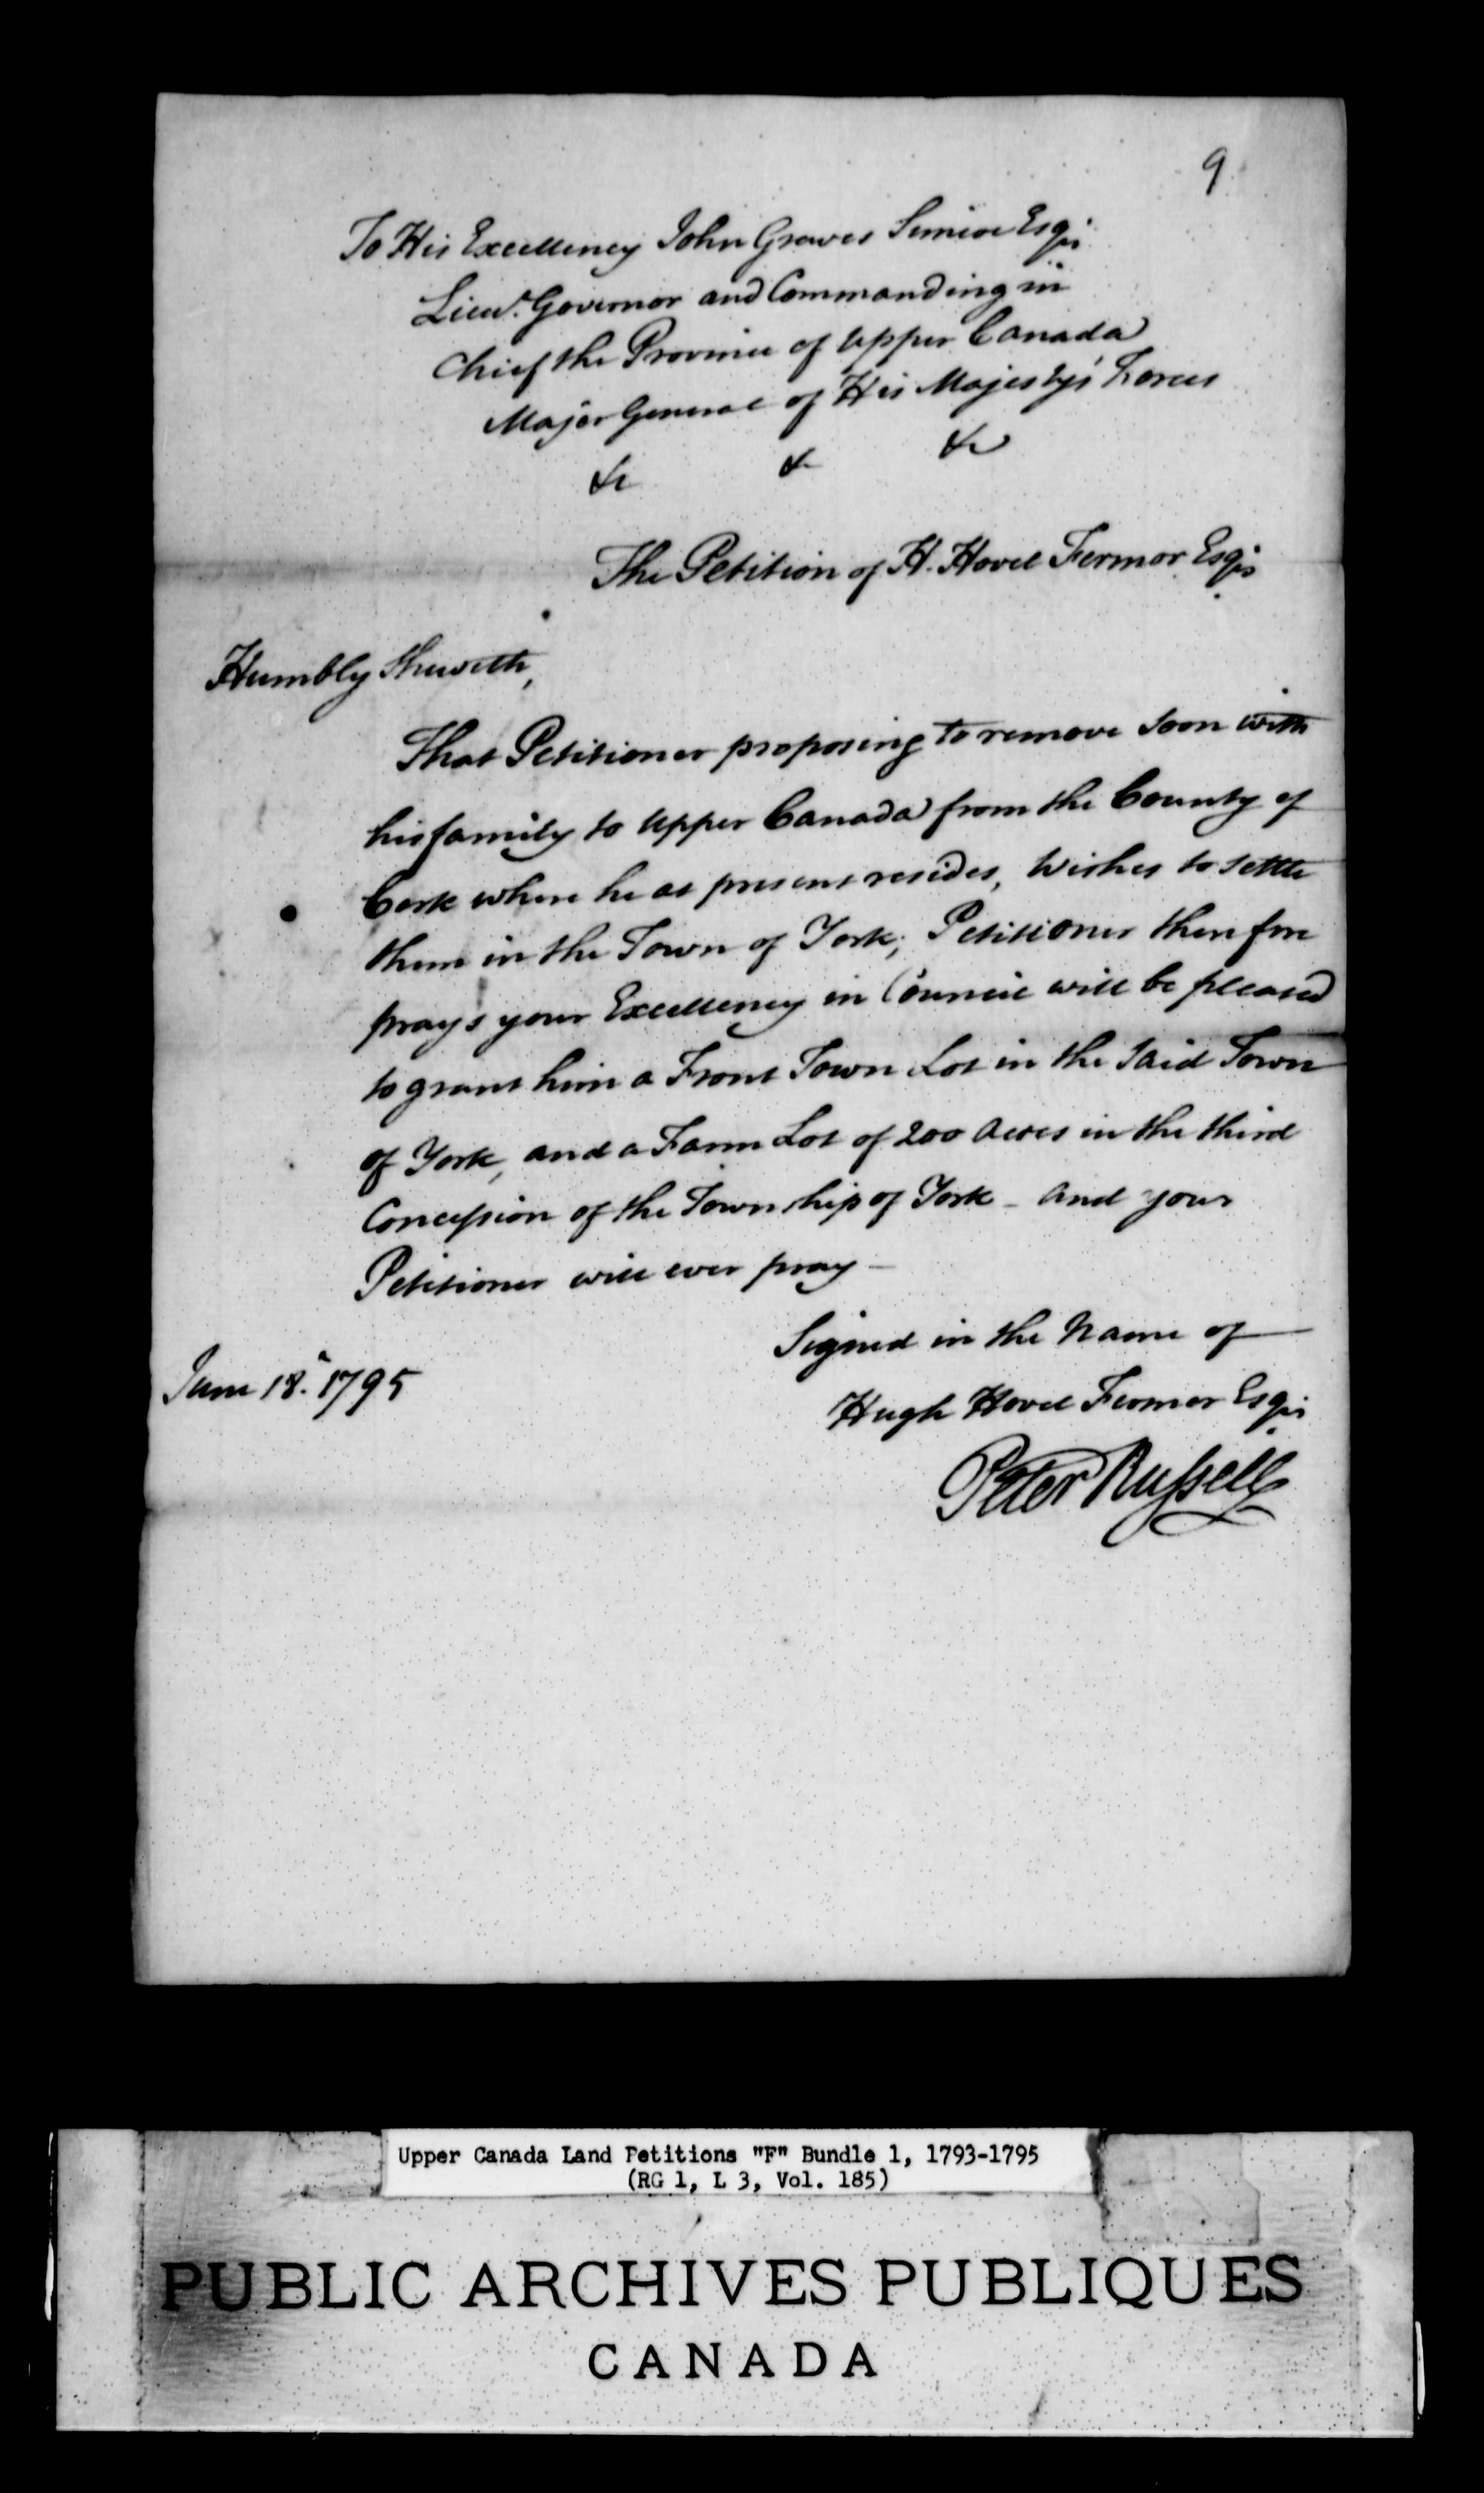 9
To His Excellency John Graves Simcoe Esqr
Lieut. Governor and Commanding in
Chief the Province of Upper Canada
Major General of His Majesty's Forces
&c & &c
The Petition of H. Hovel Farmar Esqr
Humbly Sheweth,
That Petitioner proposing to remove soon with
his family to Upper Canada from the County of
Cork where he at present resides, Wishes to settle
them in the Town of York; Petitioner therefore
prays your Excellency in Council will be pleased
to grant him a Front Town Lot in the said Town
of York, and a Farm Lot of 200 Acres in the third
Concession of the Township of York - and your
Petitioner will ever pray -
Signed in the Name of
June 18. 1795
Hugh Hovel Farmar Esqr
Peter Russell
Upper Canada Land Petitions "F" Bundle 1, 1793-1795
(RG 1, L 3, Vol. 185)
PUBLIC ARCHIVES PUBLIQUES
CANADA